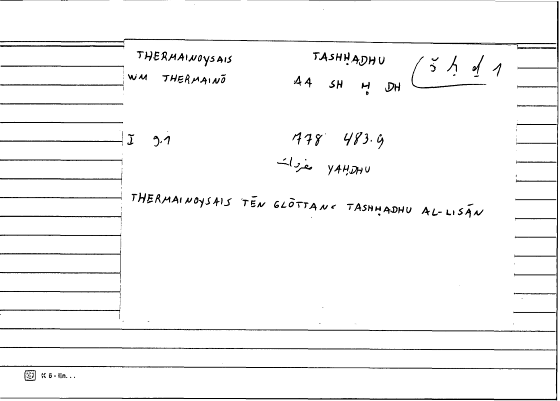 THERMAINOYSAIS TASHḤADHU š ḥ ḏ 1
WM THERMAINŌ AA SH Ḥ DH
I 9.1 A78 483.9
مفردات YAḤDHU
THERMAINOYSAIS TĒN GLŌTTAN< TASHḤADHU AL-LISĀN